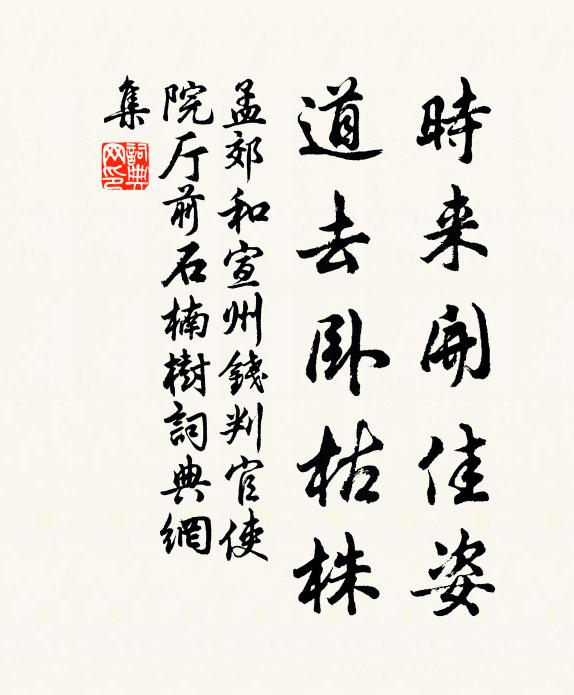 時来開佳姿
道去卧枯株
孟郊和宣州錢判官使
院厅前石楠樹詞典網
集
詞典
网印